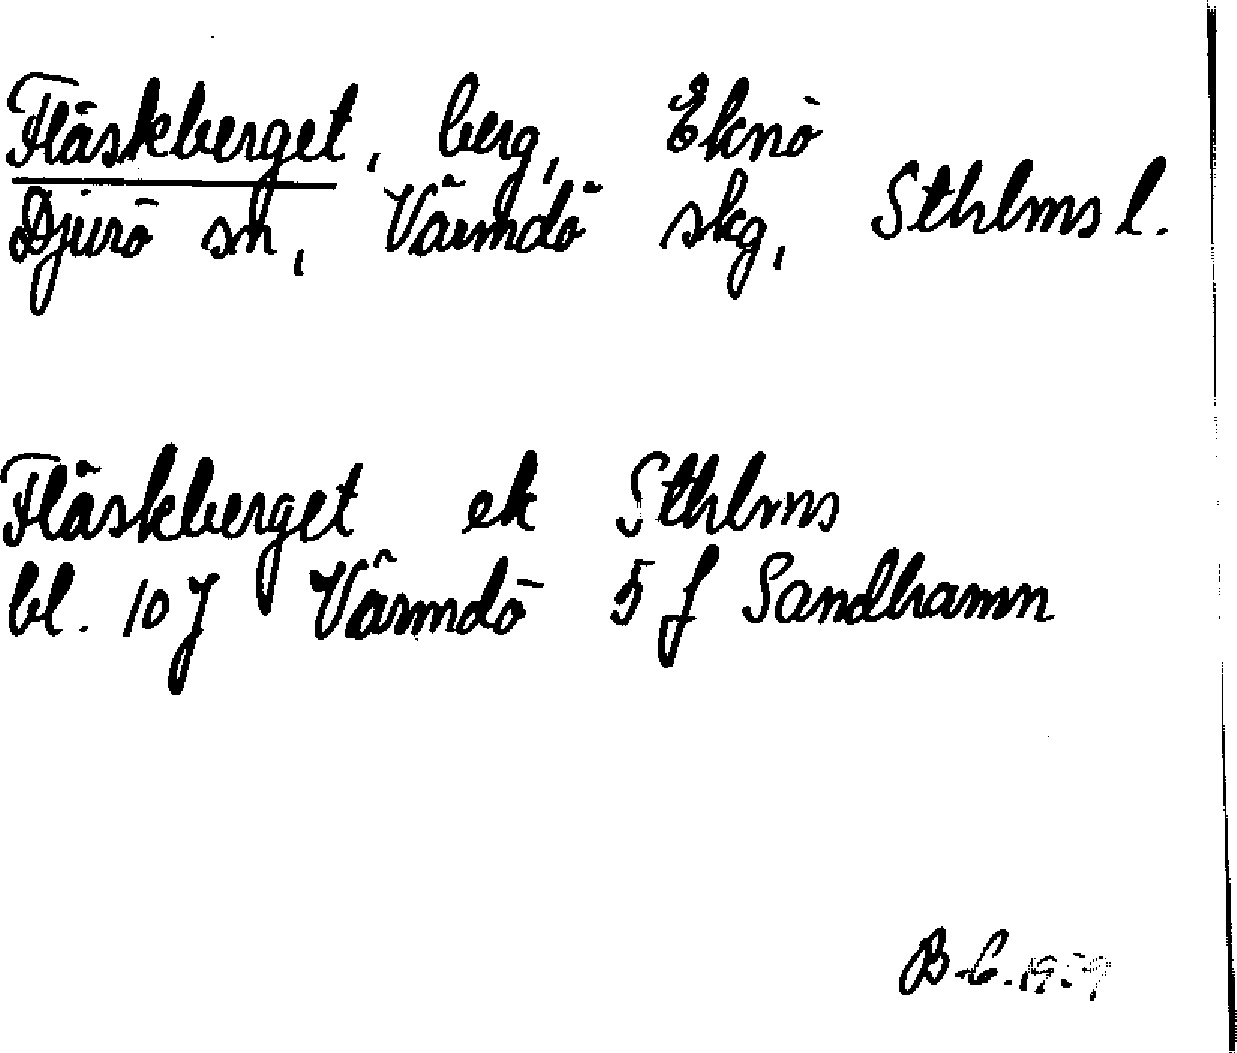 Fläskberget, berg, Eknö
Djurö sn, Värmdö skg, Sthlms l.
Fläskberget ek Sthlms
bl. 10 J Värmdö 5 f Sandhamn
B-C. 1959